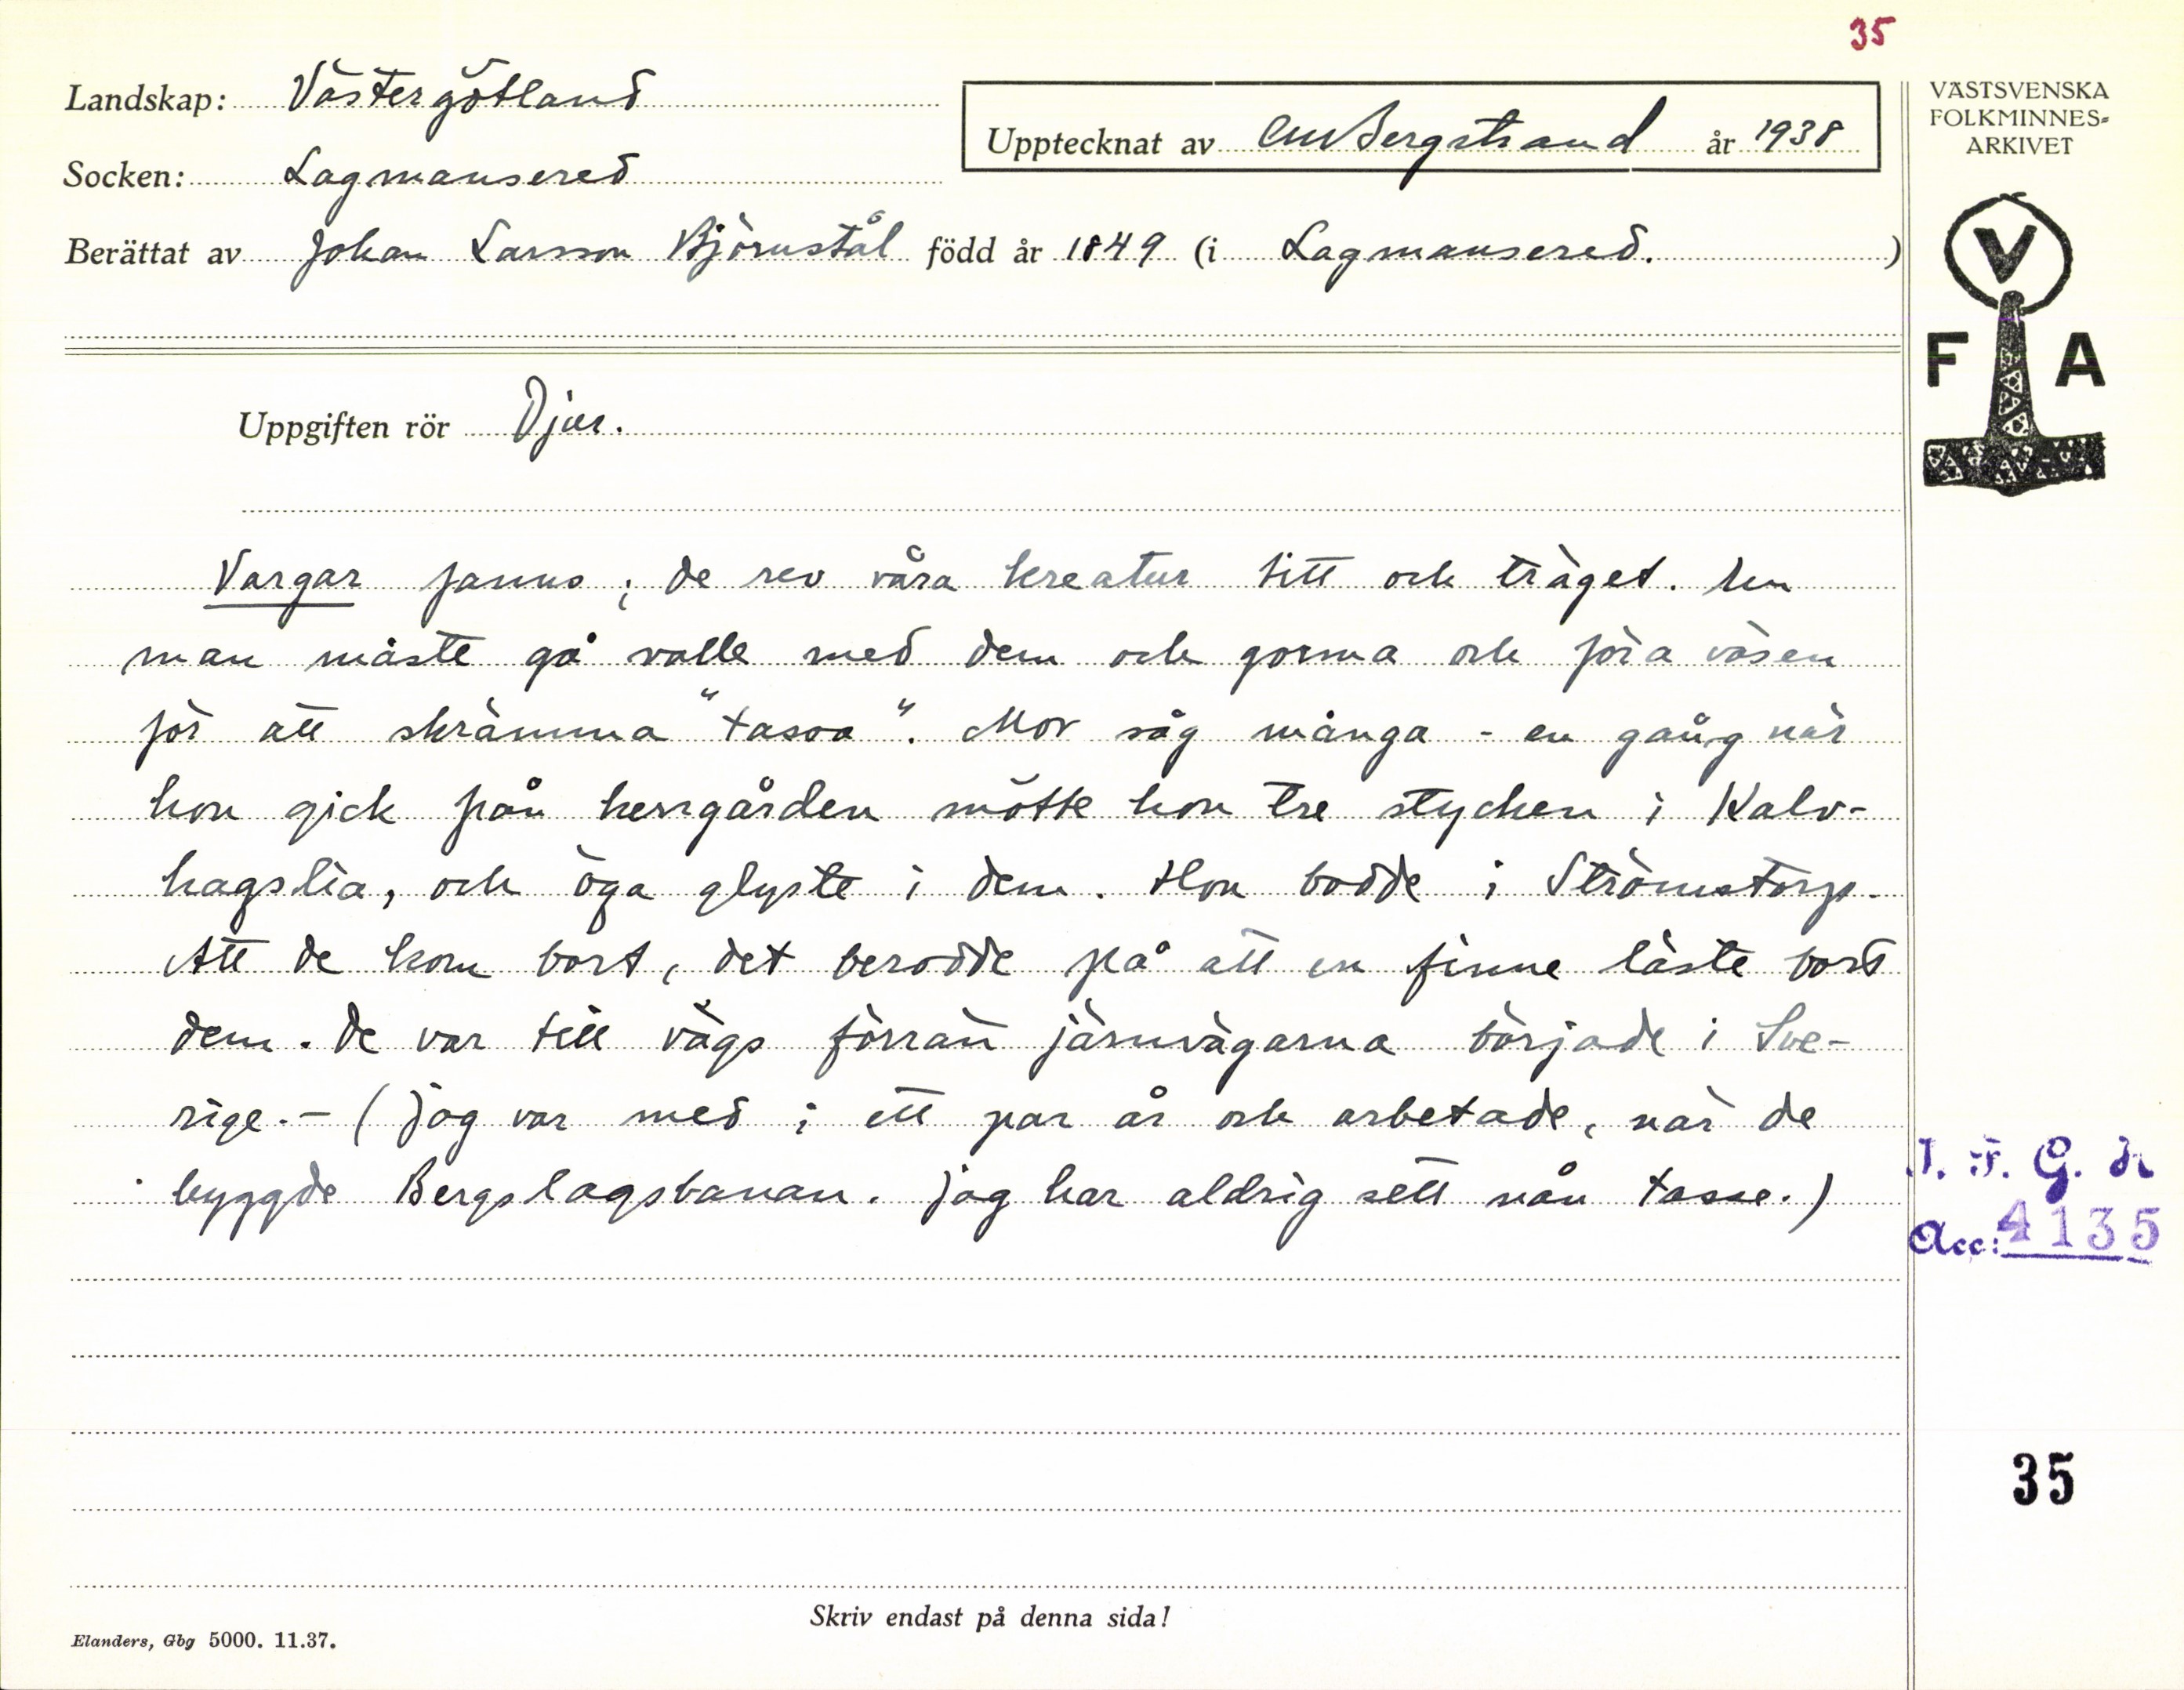 35
Landskap: Västergötland
Upptecknat av CM Bergstrand år 1938
VÄSTSVENSKA
FOLKMINNES-
ARKIVET
Socken: Lagmansered
Berättat av Johan Larsson Björnstål född år 1849 (i Lagmansered.)
V
F A
Uppgiften rör Djur.
Vargar fanns; de rev våra kreatur titt och träget.
man måste gå valle med dem och gorma och föra väsen
för att skrämma "tassa". Mor såg många - en gång när
hon gick från herrgården mötte hon tre stycken i Kalv-
hagslia, och öga glyste i dem. Hon bodde i Strömstorp.
Att de kom bort, det berodde på att en finne läste bort
dem. De var till vägs förrän järnvägarna började i Sve-
rige. - (Jag var med i ett par år och arbetade, när de
byggde Bergslagsbanan. Jag har aldrig sett nån tasse.)
Acc: 4135
35
Skriv endast på denna sida!
Elanders, Gbg 5000. 11.37.